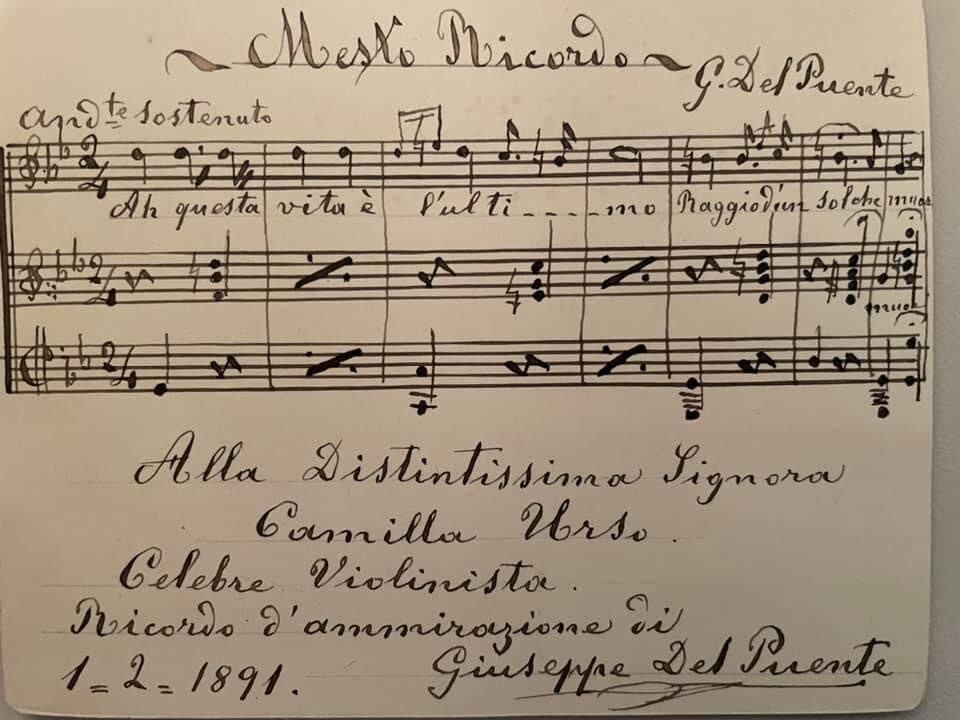 ~ Mesto Ricordo ~
G. Del Puente
And.te sostenuto
Ah questa vita è l'ulti - - - - mo Raggio d'un sol che muor
muor
Alla Distintissima Signora
Camilla Urso.
Celebre Violinista.
Ricordo d'ammirazione di
1=2=1891. Giuseppe Del Puente